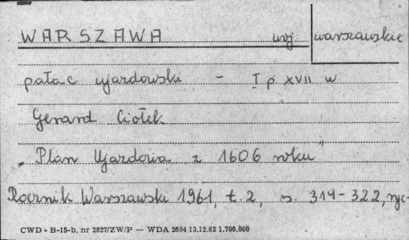 WARSZAWA woj. warszawskie
pałac ujazdowski – I p XVII w
Gerard Ciołek
„Plan Ujazdowa z 1606 roku"
Rocznik Warszawski 1961, t. 2, s. 314-322, ryc.
CWD - B-15-b, nr 2827/ZW/P — WDA 2694 13.12.62 1.700.000